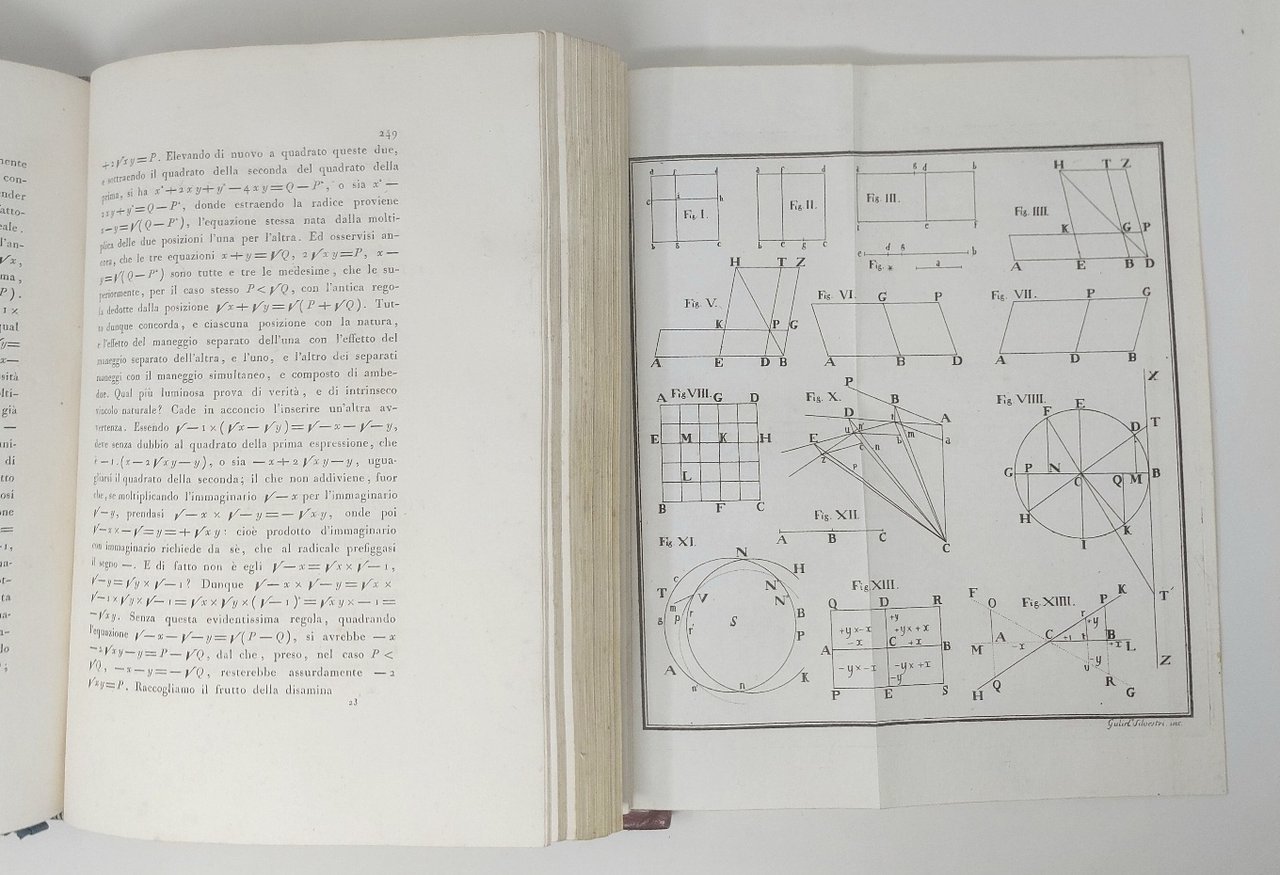 nente
con-
nder
fatto-
eale.
l'an-
√x,
ma,
P).
1 ×
qual
√=
x—
sità
olti-
già
—
ani-
di
tto
osi
one
=
-1,
249
+2√xy=P. Elevando di nuovo a quadrato queste due,
e sottraendo il quadrato della seconda del quadrato della
prima, si ha x²+2xy+y²—4xy=Q—P², o sia x²—
2xy+y²=Q—P², donde estraendo la radice proviene
x—y=√(Q—P²), l'equazione stessa nata dalla molti-
plica delle due posizioni l'una per l'altra. Ed osservisi an-
cora, che le tre equazioni x+y=√Q, 2√xy=P, x—
y=√(Q—P²) sono tutte e tre le medesime, che le su-
periormente, per il caso stesso P<√Q, con l'antica rego-
la dedotte dalla posizione √x+√y=√(P+√Q). Tut-
to dunque concorda, e ciascuna posizione con la natura,
e l'effetto del maneggio separato dell'una con l'effetto del
maneggio separato dell'altra, e l'uno, e l'altro dei separati
maneggi con il maneggio simultaneo, e composto di ambe-
due. Qual più luminosa prova di verità, e di intrinseco
vincolo naturale? Cade in acconcio l'inserire un'altra av-
vertenza. Essendo √—1×(√x—√y)=√—x—√—y,
deve senza dubbio al quadrato della prima espressione, che
è —1.(x—2√xy—y), o sia —x+2√xy—y, ugua-
gliarsi il quadrato della seconda; il che non addiviene, fuor
che, se moltiplicando l'immaginario √—x per l'immaginario
√—y, prendasi √—x × √—y=—√xy, onde poi
√—x×—√—y=+√xy: cioè prodotto d'immaginario
con immaginario richiede da sè, che al radicale prefiggasi
il segno —. E di fatto non è egli √—x=√x×√—1,
√—y=√y×√—1? Dunque √—x×√—y=√x×
√—1×√y×√—1=√x×√y×(√—1)²=√xy×—1=
—√xy. Senza questa evidentissima regola, quadrando
l'equazione √—x—√—y=√(P—Q), si avrebbe —x
—2√xy—y=P—√Q, dal che, preso, nel caso P<
√Q, —x—y=—√Q, resterebbe assurdamente —2
√xy=P. Raccogliamo il frutto della disamina
23
Fig. I.
Fig. II.
Fig. III.
Fig. IIII.
H T Z
K G P
A E B D
Fig. *
a
Fig. V.
H T Z
K P G
A E D B
Fig. VI.
G P
A B D
Fig. VII.
P G
A D B
Fig VIII.
A G D
E M K H
L
B F C
Fig. X.
P
D B A
E a
C
Fig VIIII.
X
F E
D T
G P N C Q M B
H K
I
T'
Z
Fig. XII.
A B C
Fig XI.
N
H
T V N' N''
B
S
P
A
K
n' n
Fig XIII.
Q D R
+y×-x +y×+x
A C +x B
-y×-x -y×+x
-y
P E S
Fig. XIIII.
F O P K
M A -x C +1 B +x L
+y
-y
H Q R G
Gulie.º Silvestri inc.